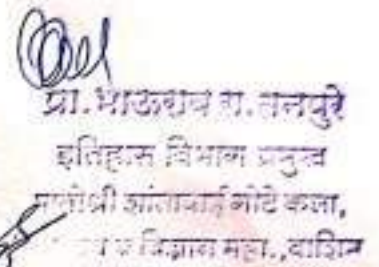 प्रा. भाऊराव रा. तनपुरे
इतिहास विभाग प्रमुख
मातोश्री शांताबाई गोटे कला,
व विज्ञान महा., वाशिम